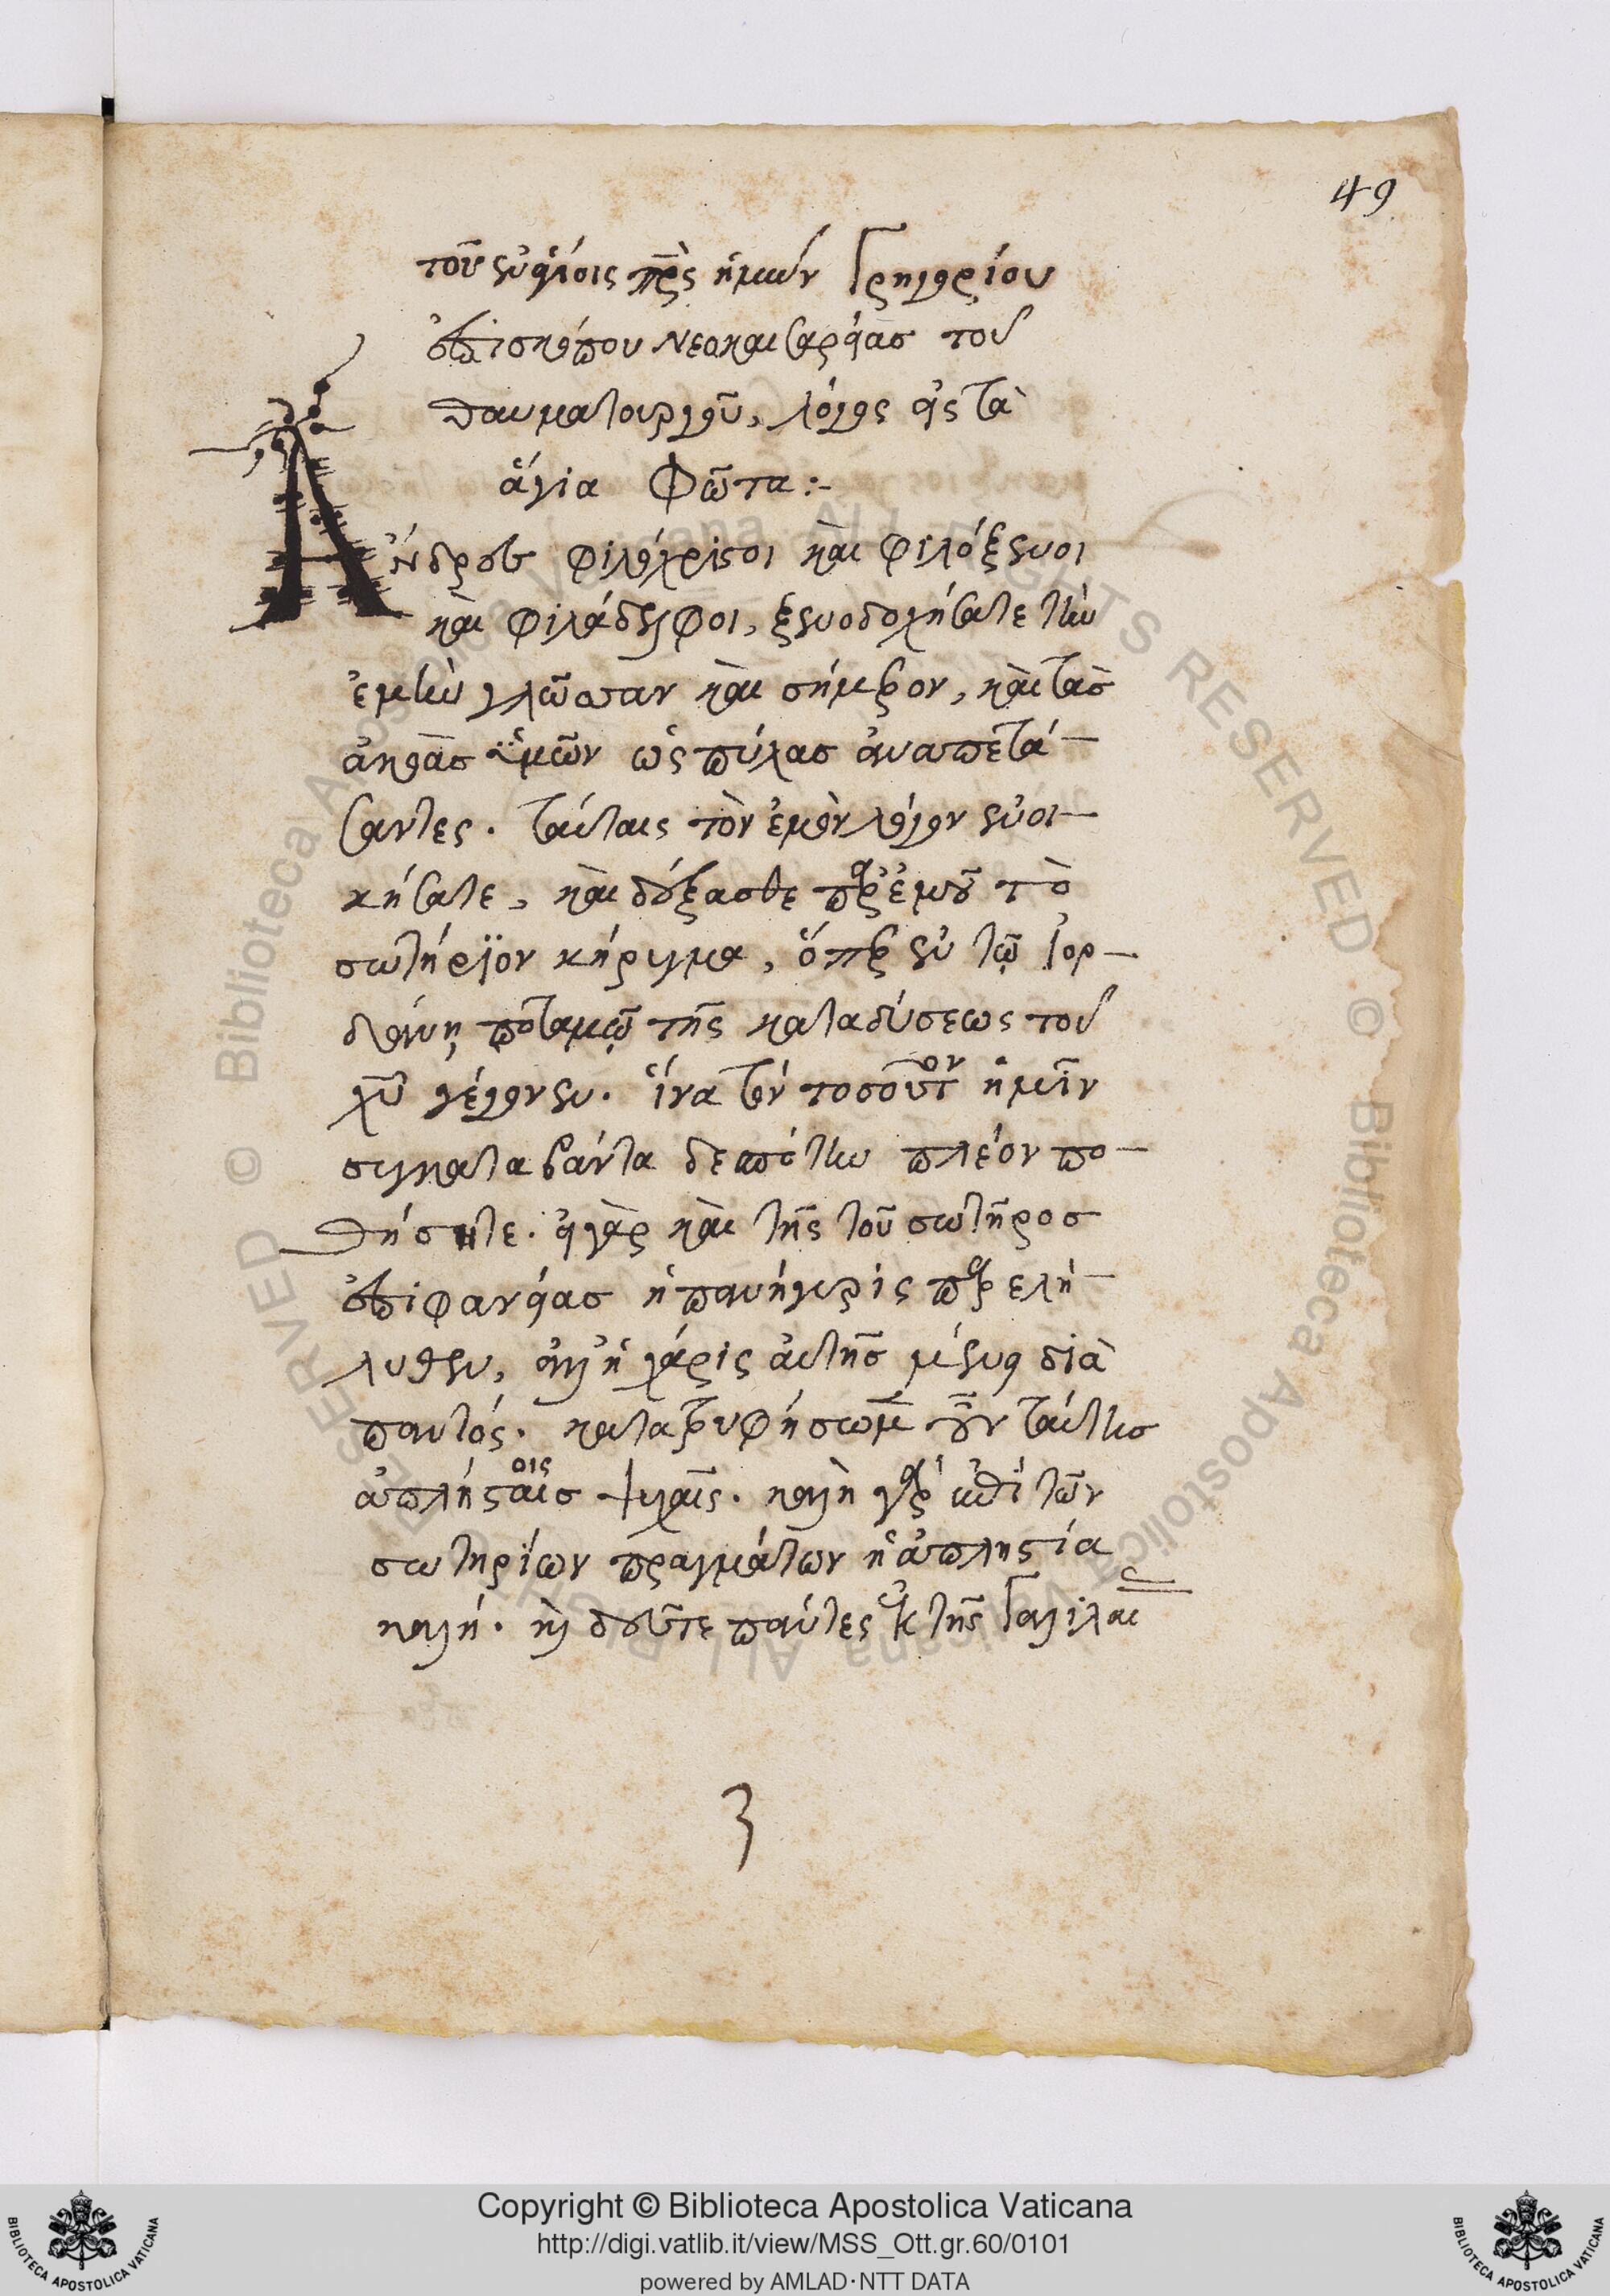 49
τοῦ ἐν ἁγίοις πρ̅ς ἡμῶν Γρηγορίου
ἐπισκόπου νεοκαισαρείας τοῦ
θαυματουργοῦ, λόγος εἰς τὰ
ἅγια Φῶτα:-
Ἄνδρες φιλόχριστοι καὶ φιλόξενοι
καὶ φιλάδελφοι, ξενοδοχήσατε τὴν
ἐμὴν γλῶσσαν καὶ σήμερον, καὶ τὰς
ἀκοὰς ὑμῶν ὡς πύλας ἀναπετά-
σαντες. ταύταις τὸν ἐμὸν λόγον ἐνοι-
κήσατε, καὶ δέξασθε παρ' ἐμοῦ τὸ
σωτήριον κήρυγμα, ὅπερ ἐν τῷ Ἰορ-
δάνῃ ποταμῷ τῆς καταδύσεως τοῦ
χυ̅ γέγονεν. ἵνα τὸν τοσοῦτον ἡμῖν
συγκαταβάντα δεσπότην πλέον πο-
θήσητε. εἰ γὰρ καὶ τῆς τοῦ σωτῆρος
ἐπιφανείας ἡ πανήγυρις παρελή-
λυθεν, ἀλλ' ἡ χάρις αὐτῆς μένει διὰ
παντός. κατατρυφήσωμεν οὖν ταύτης
ἀπλήσταις οις ψυχαῖς. καλὴ γὰρ ἐπὶ τῶν
σωτηρίων πραγμάτων ἡ ἀπληστία
καλή. καὶ δεῦτε πάντες ἐκ τῆς Γαλιλαί
3
Copyright © Biblioteca Apostolica Vaticana
http://digi.vatlib.it/view/MSS_Ott.gr.60/0101
powered by AMLAD·NTT DATA
BIBLIOTECA APOSTOLICA VATICANA
BIBLIOTECA APOSTOLICA VATICANA